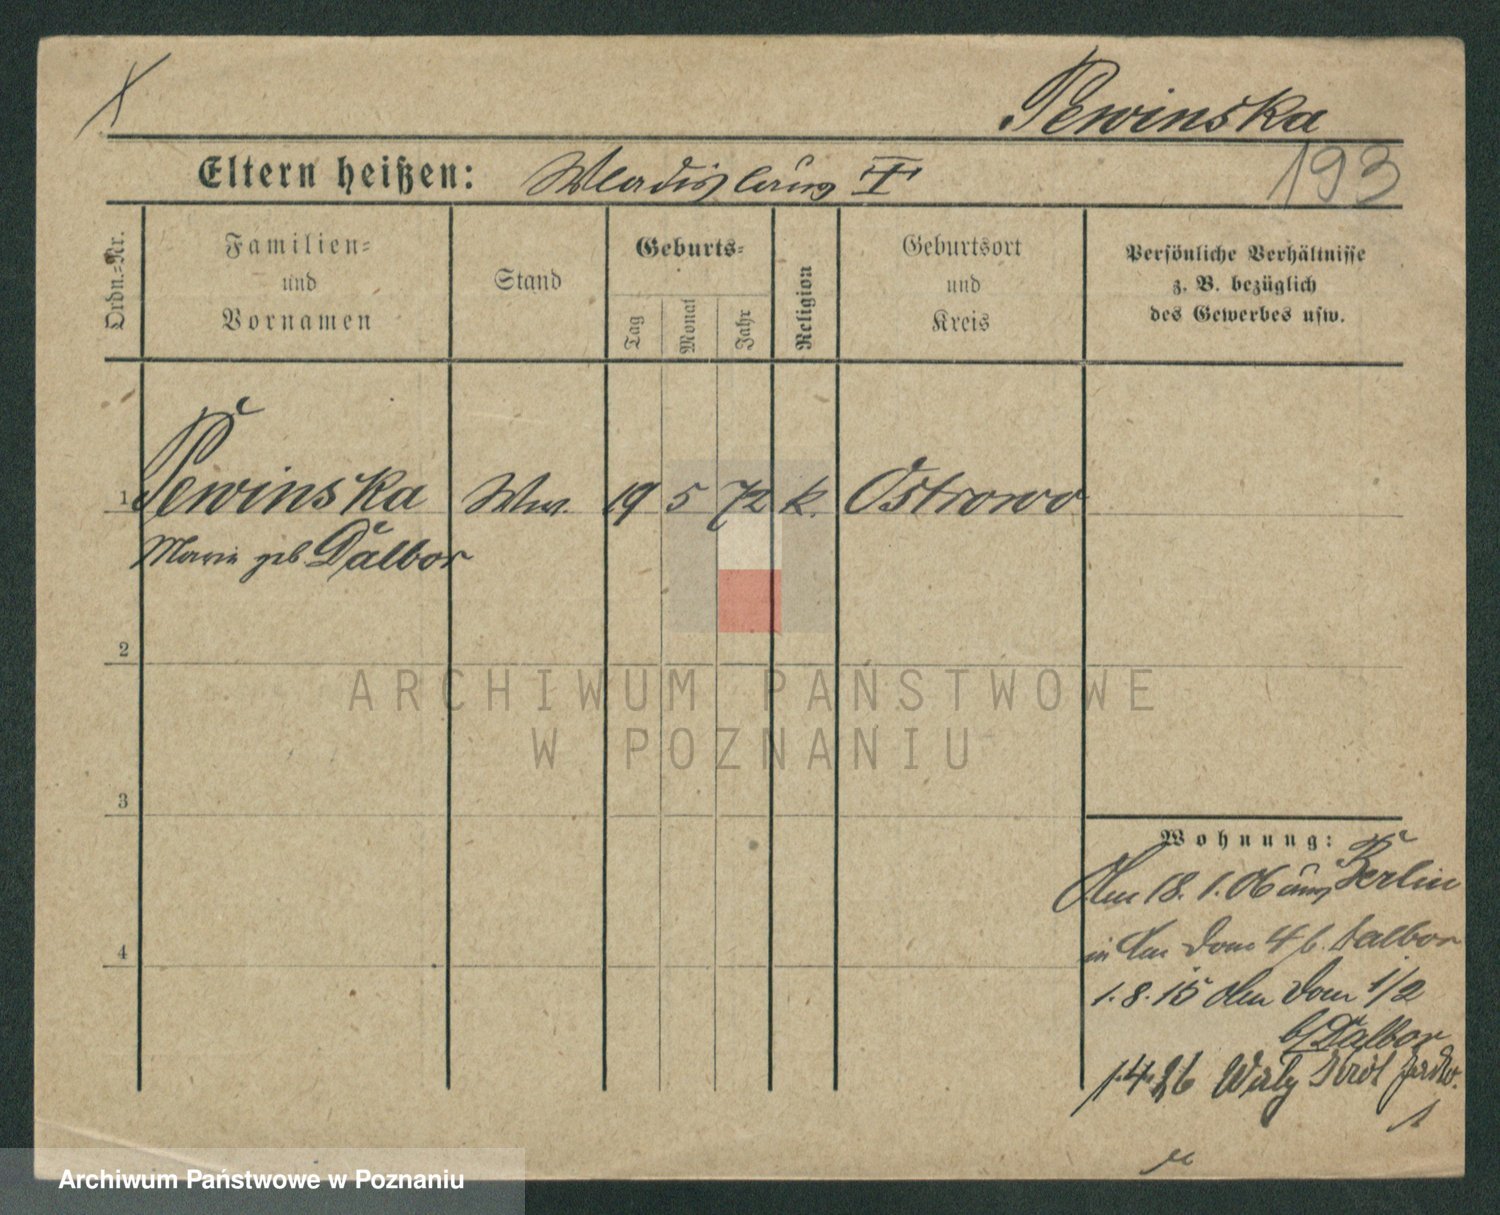 Pewinska
193
Eltern heißen: Wladislaus I
Ordn.=Nr.
Familien=
und
Vornamen
Stand
Geburts=
Tag
Monat
Jahr
Religion
Geburtsort
und
Kreis
Persönliche Verhältnisse
z. B. bezüglich
des Gewerbes usw.
1 Pewinska Ww. 19 5 72 k. Ostrowo
Marie geb Dalbor
2
3
4
ARCHIWUM PAŃSTWOWE
W POZNANIU
Wohnung:
18. 1. 06 aus Berlin
in Dom 4 b. Dalbor
1. 8. 15 Dom 1/2
b/ Dalbor
1.4.26
Archiwum Państwowe w Poznaniu